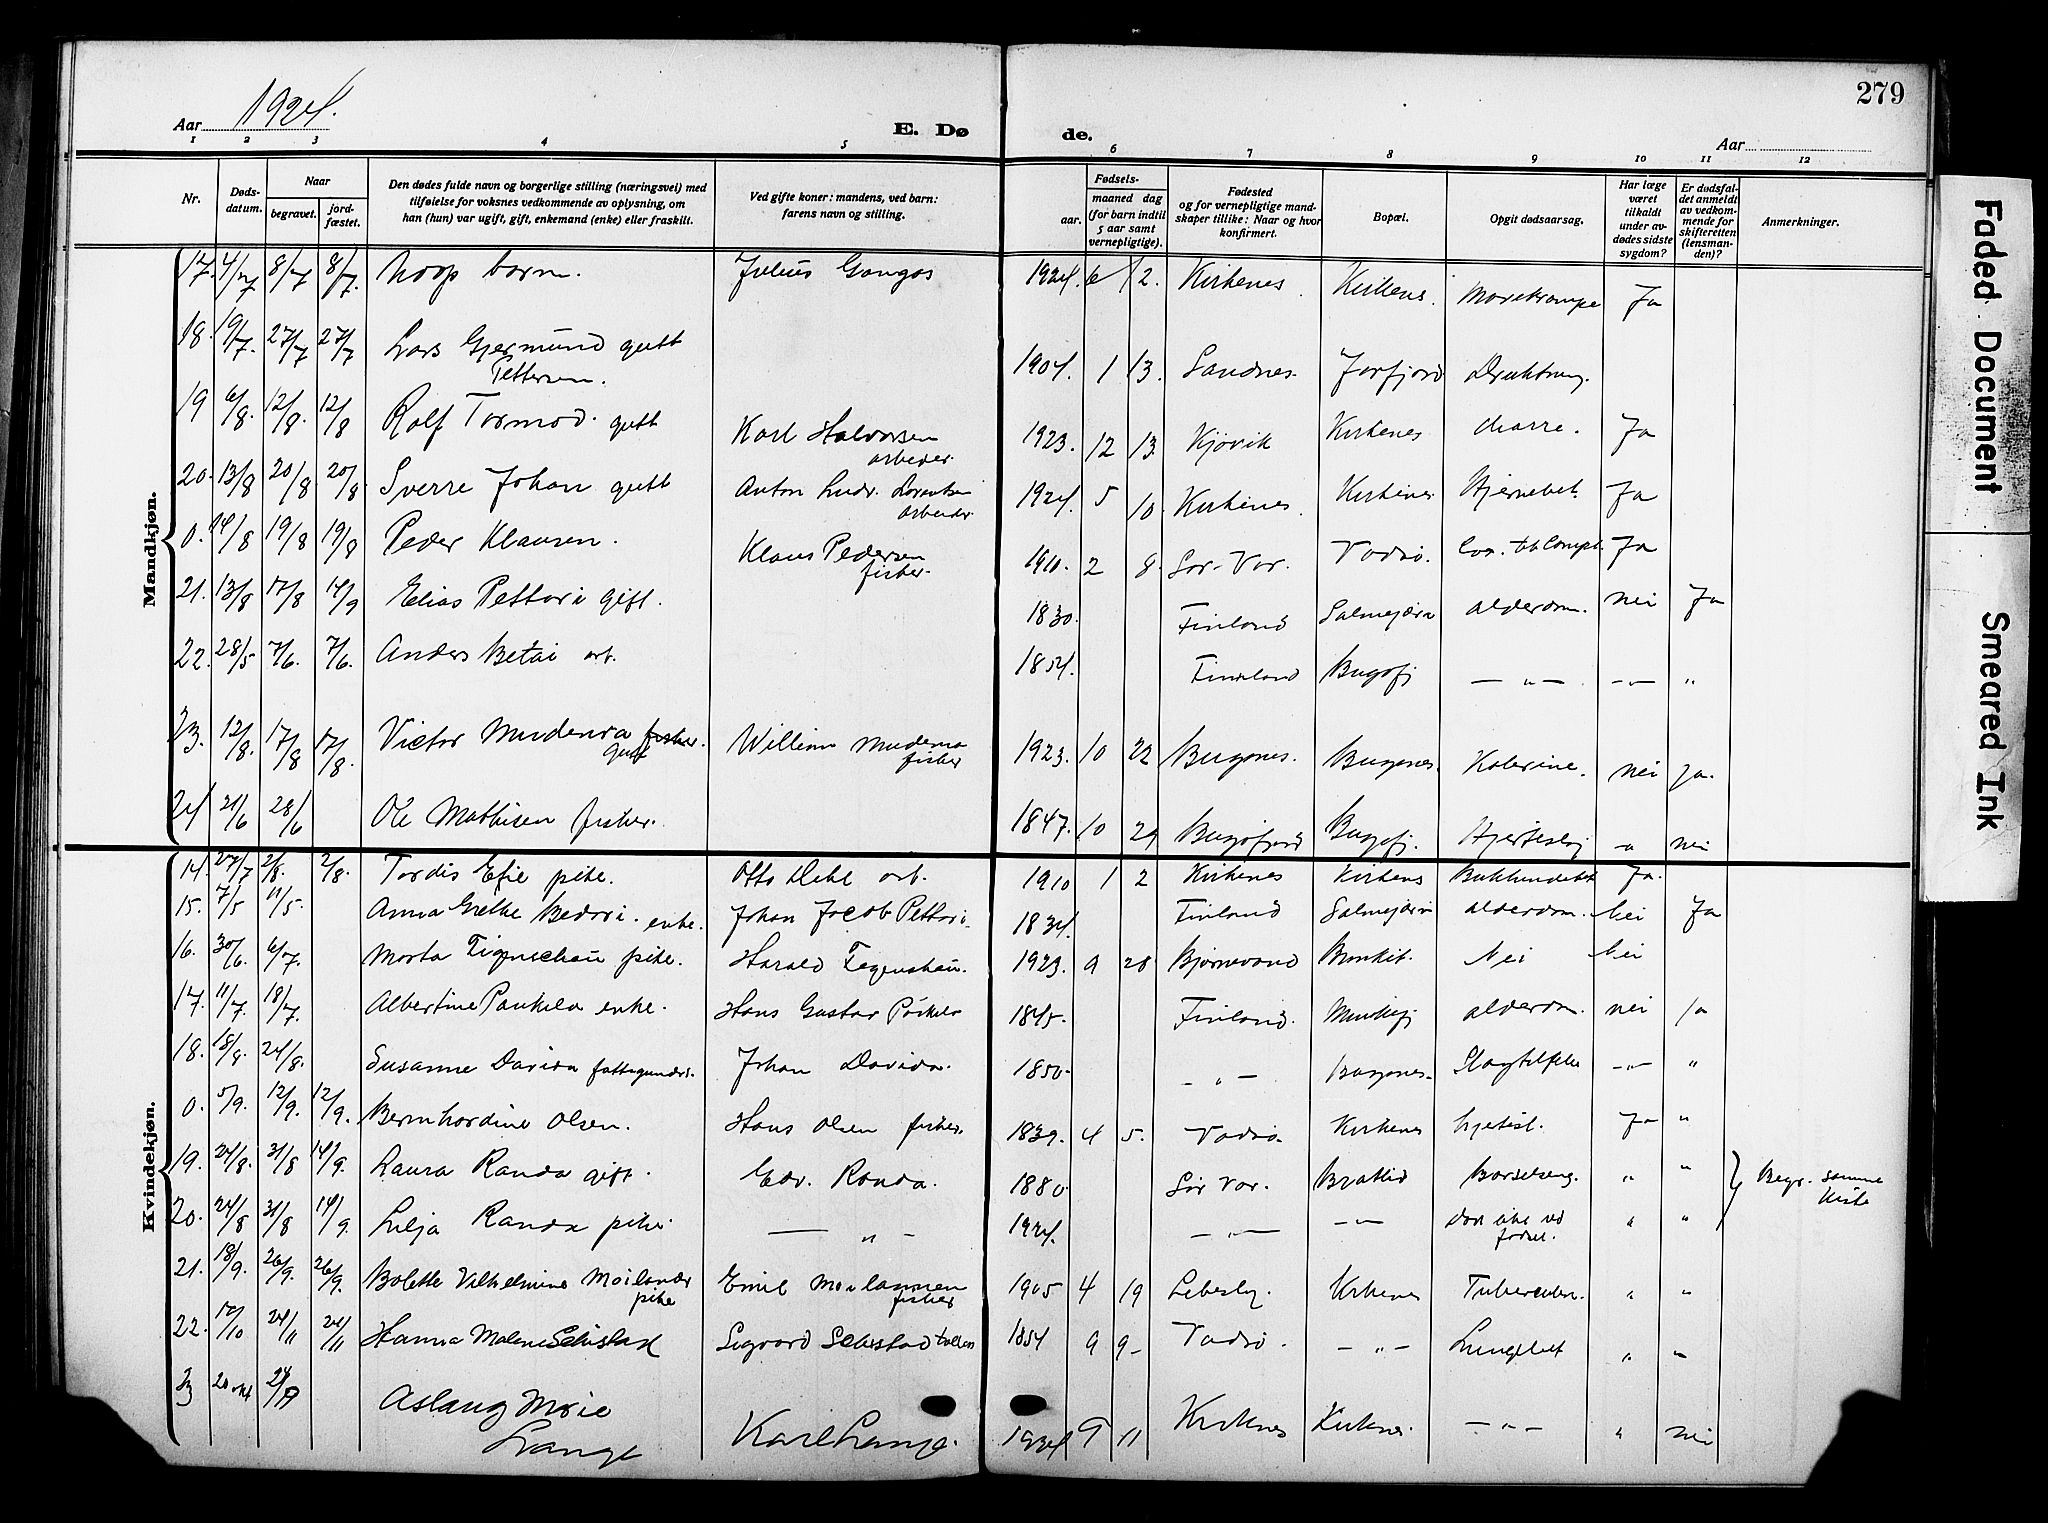 279
Aar 1924.
E. Døde.
Aar
1 2 3 4 5 6 7 8 9 10 11 12
Nr.
Døds-datum.
Naar
begravet.
jord-fæstet.
Den dødes fulde navn og borgerlige stilling (næringsvei) med
tilføielse for voksnes vedkommende av oplysning, om
han (hun) var ugift, gift, enkemand (enke) eller fraskilt.
Ved gifte koner: mandens, ved barn:
farens navn og stilling.
Fødsels-
aar.
maaned dag
(for barn indtil
5 aar samt
vernepligtige).
Fødested
og for vernepligtige mand-
skaper tillike: Naar og hvor
konfirmert.
Bopæl.
Opgit dødsaarsag.
Har læge
været
tilkaldt
under av-
dødes sidste
sygdom?
Er dødsfal-
det anmeldt
av vedkom-
mende for
skifteretten
(lensman-
den)?
Anmerkninger.
Mandkjøn.
17. 4/7 8/7 8/7. barn. Julius 1924. 6 12. Kirkenes Kirkenes. Ja
18. 19/7. 27/7 27/7 Lars Gjermund gutt
Pettersen. 1904. 1 13. Sandnes. Jarfjord Drukning.
19 6/8. 12/8. 12/8 Rolf Tormod. gutt Karl Halvorsen
arbeider. 1923. 12 13. Kjøvik Kirkenes diarre. Ja
20. 13/8 20/8 20/8 Sverre Johan gutt Anton Ludv. Lorentsen
arbeider. 1924. 5 10. Kirkenes. Kirkenes Hjernebet. Ja
0. 14/8 19/8 19/8 Peder Klausen. Klaus Pedersen
fisker. 1910. 2 8. Sør-Var. Vadsø. Ja
21. 13/8 17/8 14/9 Elias Pettari gift. 1830. Finland Salmejärvi alderdom. nei Ja
22. 28/5 7/6. 7/6. Anders Betai arb. 1854. Finland Bugøfj — „ — - „ - „
23. 12/8. 17/8 17/8. Victor Mudenia fisker.
gutt William Mudenia
fisker 1923. 10 22 Bugønes. Bugønes. Kolerine. nei ja.
24 21/6 28/6 Ole Mathisen fisker. 1847. 10 29 Bugøfjord Bugøfj. nei
Kvindekjøn.
14. 27/7 2/8. 2/8. Tordis Efie pike. Otto Dehl arb. 1910 1 2 Kirkenes Kirkenes Ja.
15. 7/5 11/5. Anna Grethe Bedari. enke. Johan Jacob Pettari. 1834. Finland Salmejärvi alderdom. Nei Ja
16. 30/6. 6/7. Marta Figenschau pike. Harald Fegenschau. 1923. 9 28 Bjørnevand Nei Nei
17. 11/7 18/7. Albertine Paukela enke. Hans Gustav 1845. Finland. alderdom. nei ja
18. 18/8. 24/8. Susanne Davida fattigunders. Johan Davida. 1850. — „ — Bugønes. Slagtilfelde - „ - „
0. 5/9. 12/9. 12/9. Bernhardine Olsen. Hans Olsen fisker. 1839. 4 5. Vadsø. Kirkenes Ja „
19. 24/8. 31/8 14/9. Laura Randa gift. Edv. Randa. 1880 Sør Var. Brattlid Barselseng. „ „ } Begr. samme
kiste
20. 24/8 31/8 14/9. Lilja Randa pike. — „ — 1924. — „ — — „ — død ved
fødsel. „ „
21. 18/9. 26/9. 26/9. Bolette Vilhelmine Moilanen
pike Emil Moilannen
fisker 1905 4 19 Lebesby. Kirkenes Tuberculose. „ „
22. 17/10 24/11 24/11 Hanna Malene Sebstad Sigvard Sebstad 1854 9 9 Vadsø. — „ — Lungebet „ „
23 20 okt Aslaug Marie
Lange Karl Lange. 1924 9 11 Kirkenes Kirkenes. — „ — „ nei
Faded Document
Smeared Ink